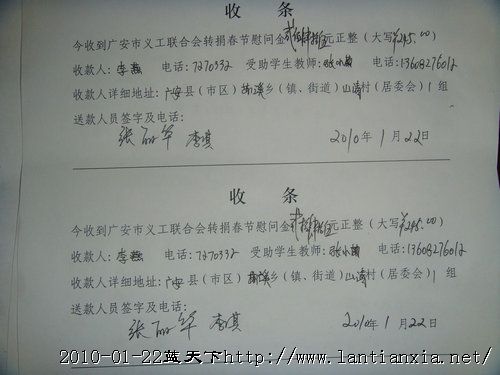 收 条
今收到广安市义工联合会转捐春节慰问金贰佰肆拾伍元正整（大写¥245.00）
收款人：李燕 电话：7270332 受助学生教师：张小 电话：13608276012
收款人详细地址：广安县（市区） 乡（镇、街道） 村（居委会）1 组
送款人员签字及电话：
张丽华 李琪 2010年 1 月 22 日
收 条
今收到广安市义工联合会转捐春节慰问金贰佰肆拾伍元正整（大写¥245.00）
收款人：李燕 电话：7270332 受助学生教师：张小 电话：13608276012
收款人详细地址：广安县（市区） 乡（镇、街道） 村（居委会）1 组
送款人员签字及电话：
张丽华 李琪 2010年 1 月 22 日
2010-01-22蓝天下http://www.lantianxia.net/